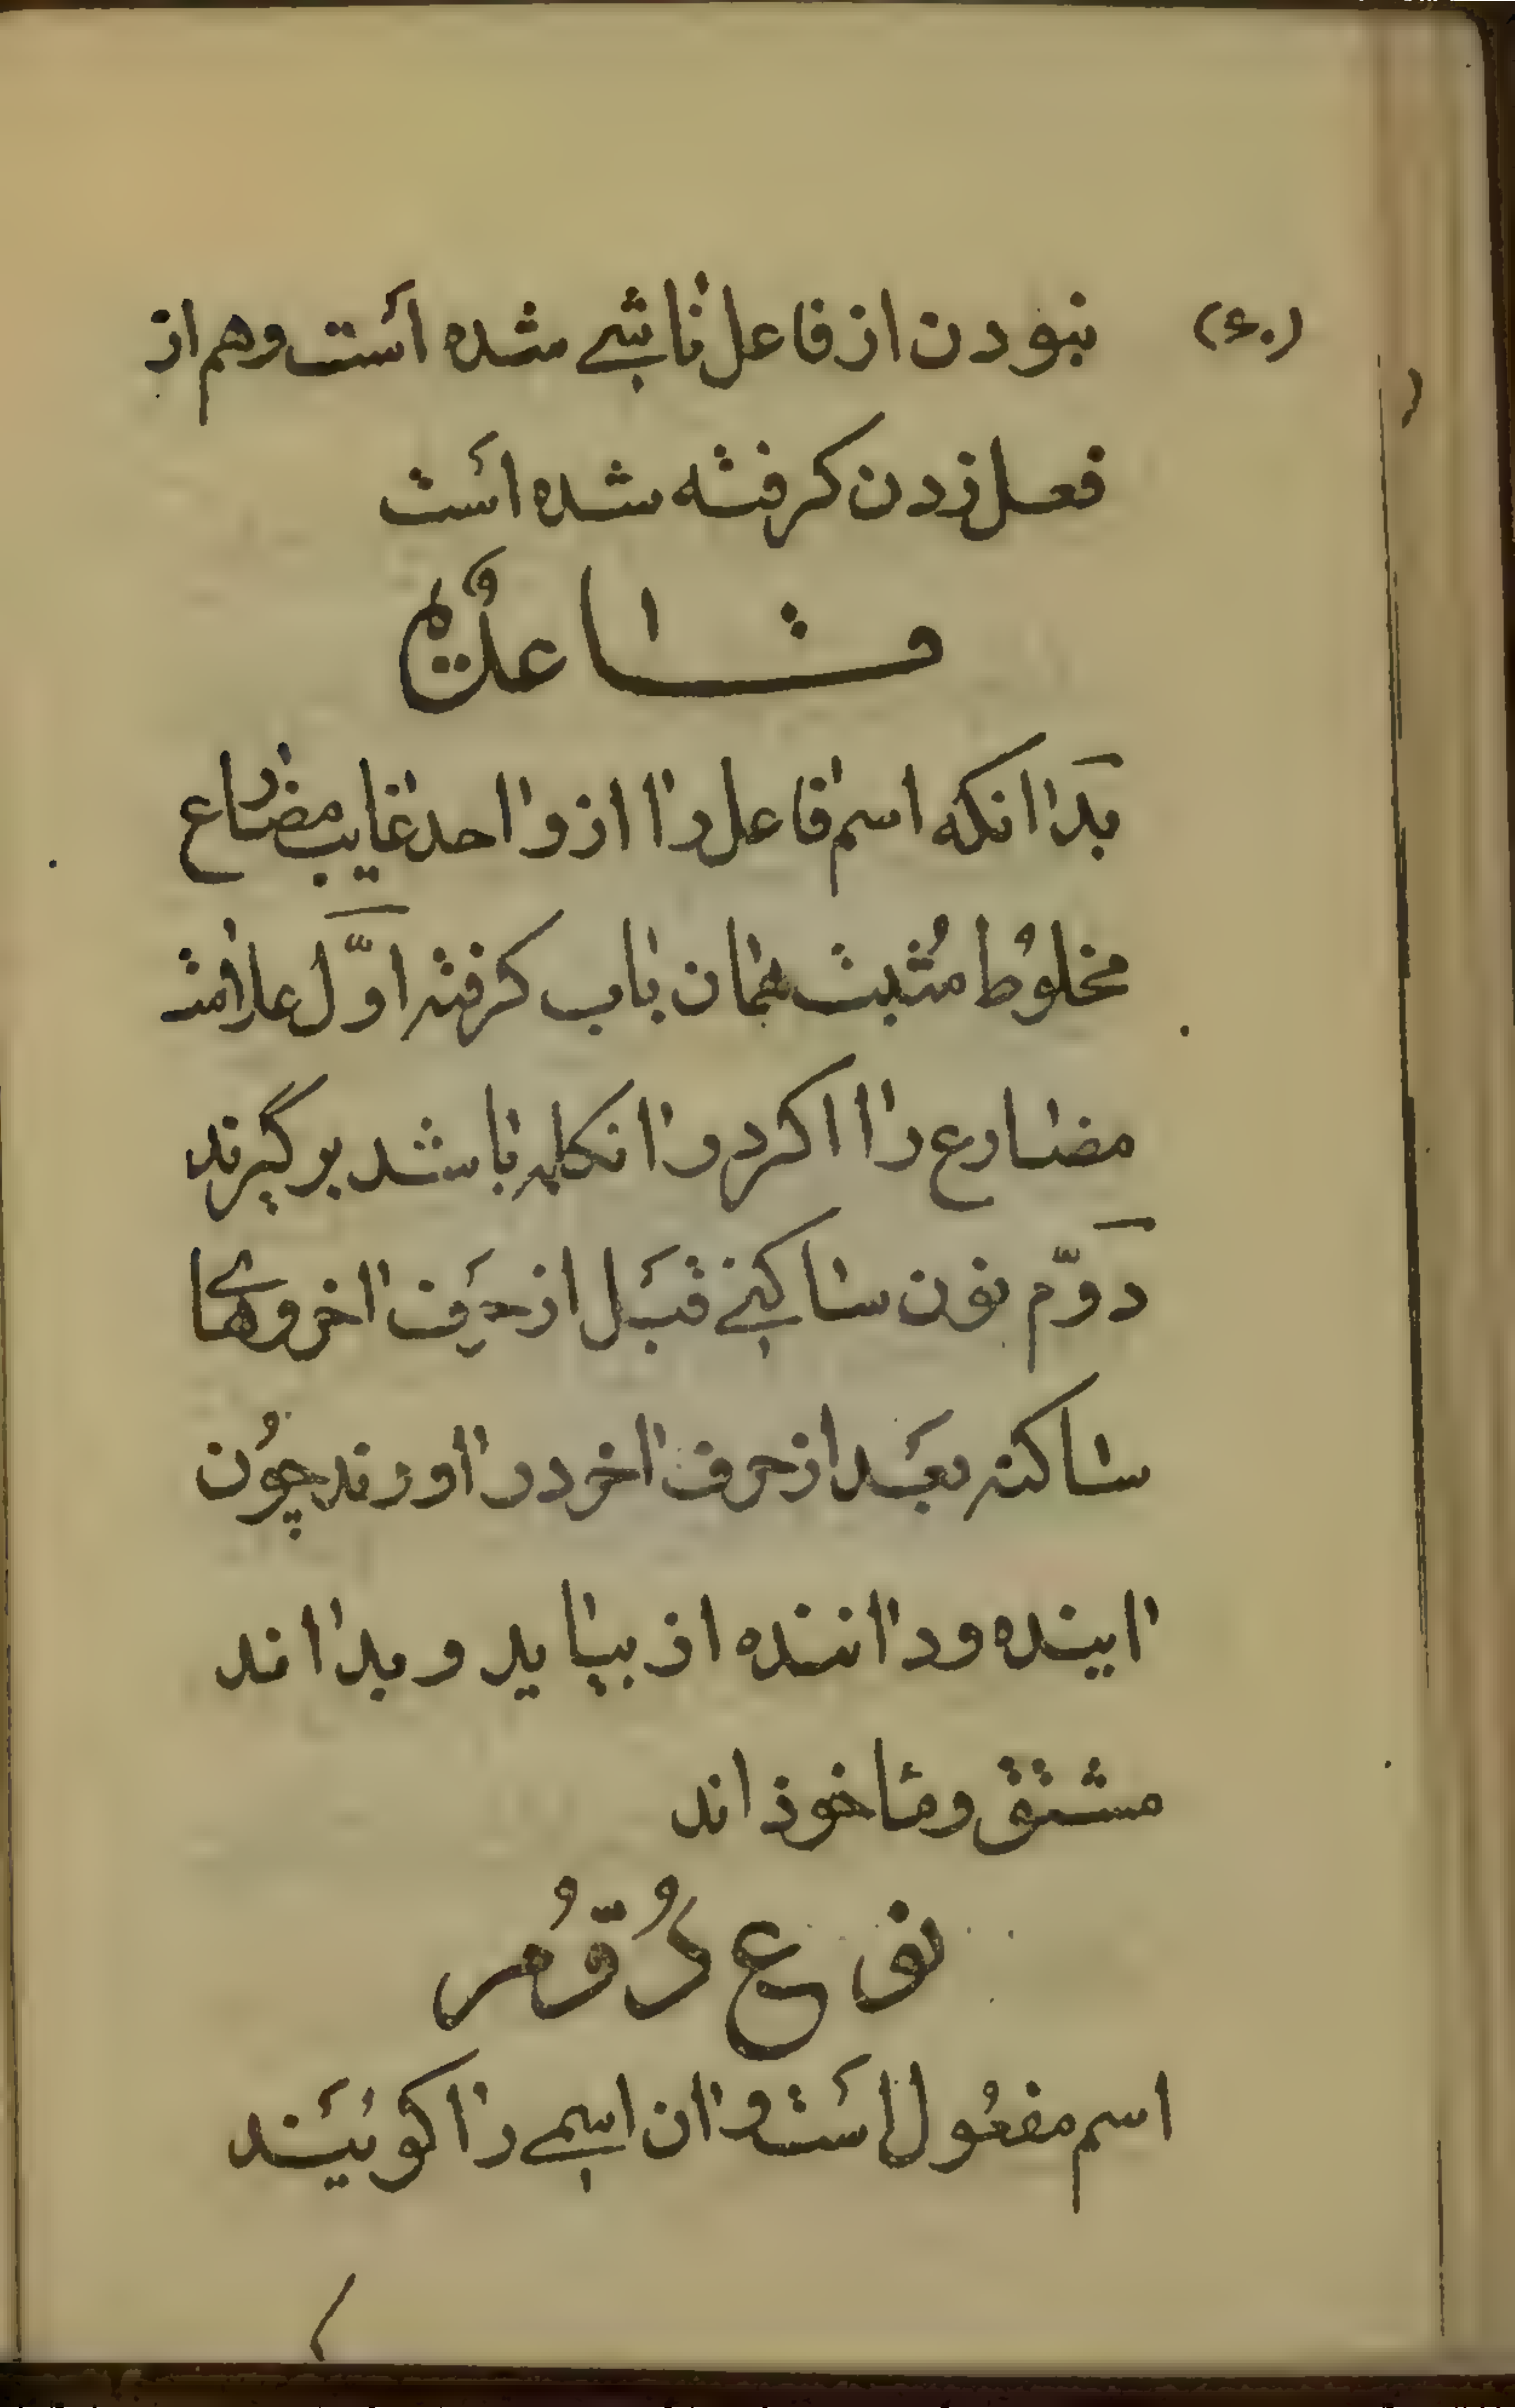 (۶۰) نبودن از فاعل ناشے شده اَست و هم از
فعل زدن کرفته شده اَست
قاعدهٔ
بدانکه اسم فاعل را از واحد غایب مضارع
مخلوُط مُثبت همان باب کرفته اوّل علامت
مضارع را اکر در انکلمه باشد برگیرند
دوّم نون ساکنے قبَل از حرَف اخر و هاے
ساکنه بعَد از حرف اخر در اورند چوُن
اینده و داننده از بیاید و بداند
مشتق و ماخوذ اند
نوع دُوّمُ
اسم مفعُول اَست و ان اسمے را کویَند